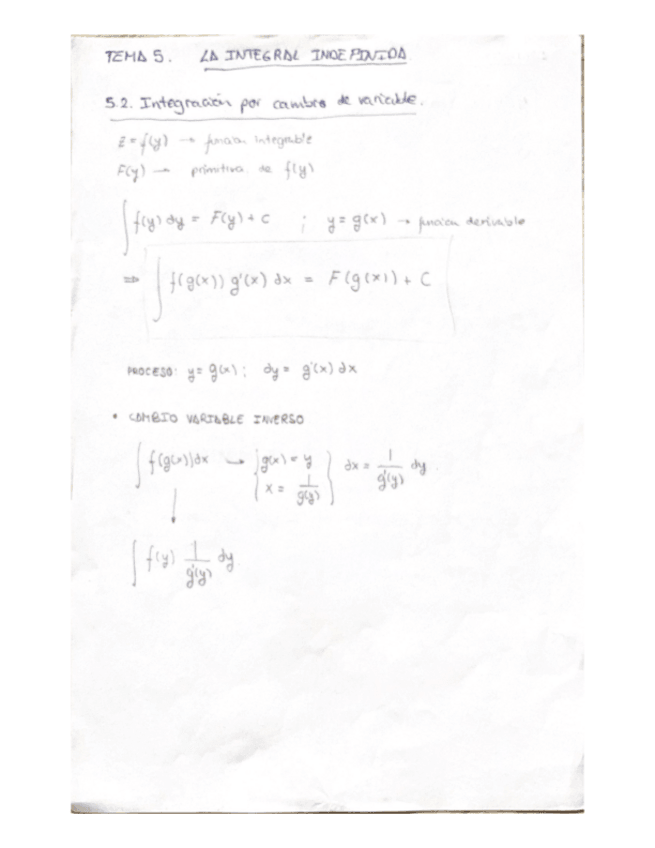 TEMA 5. LA INTEGRAL INDEFINIDA
5.2. Integración por cambio de variable.
z = f(y) → función integrable
F(y) → primitiva de f(y)
∫ f(y) dy = F(y) + C ; y = g(x) → función derivable
⇒ ∫ f(g(x)) g'(x) dx = F(g(x)) + C
PROCESO: y = g(x) ; dy = g'(x) dx
• CAMBIO VARIABLE INVERSO
∫ f(g(x)) dx → { g(x) = y x = 1/g(y) } dx = 1/g'(y) dy.
↓
∫ f(y) 1/g'(y) dy.